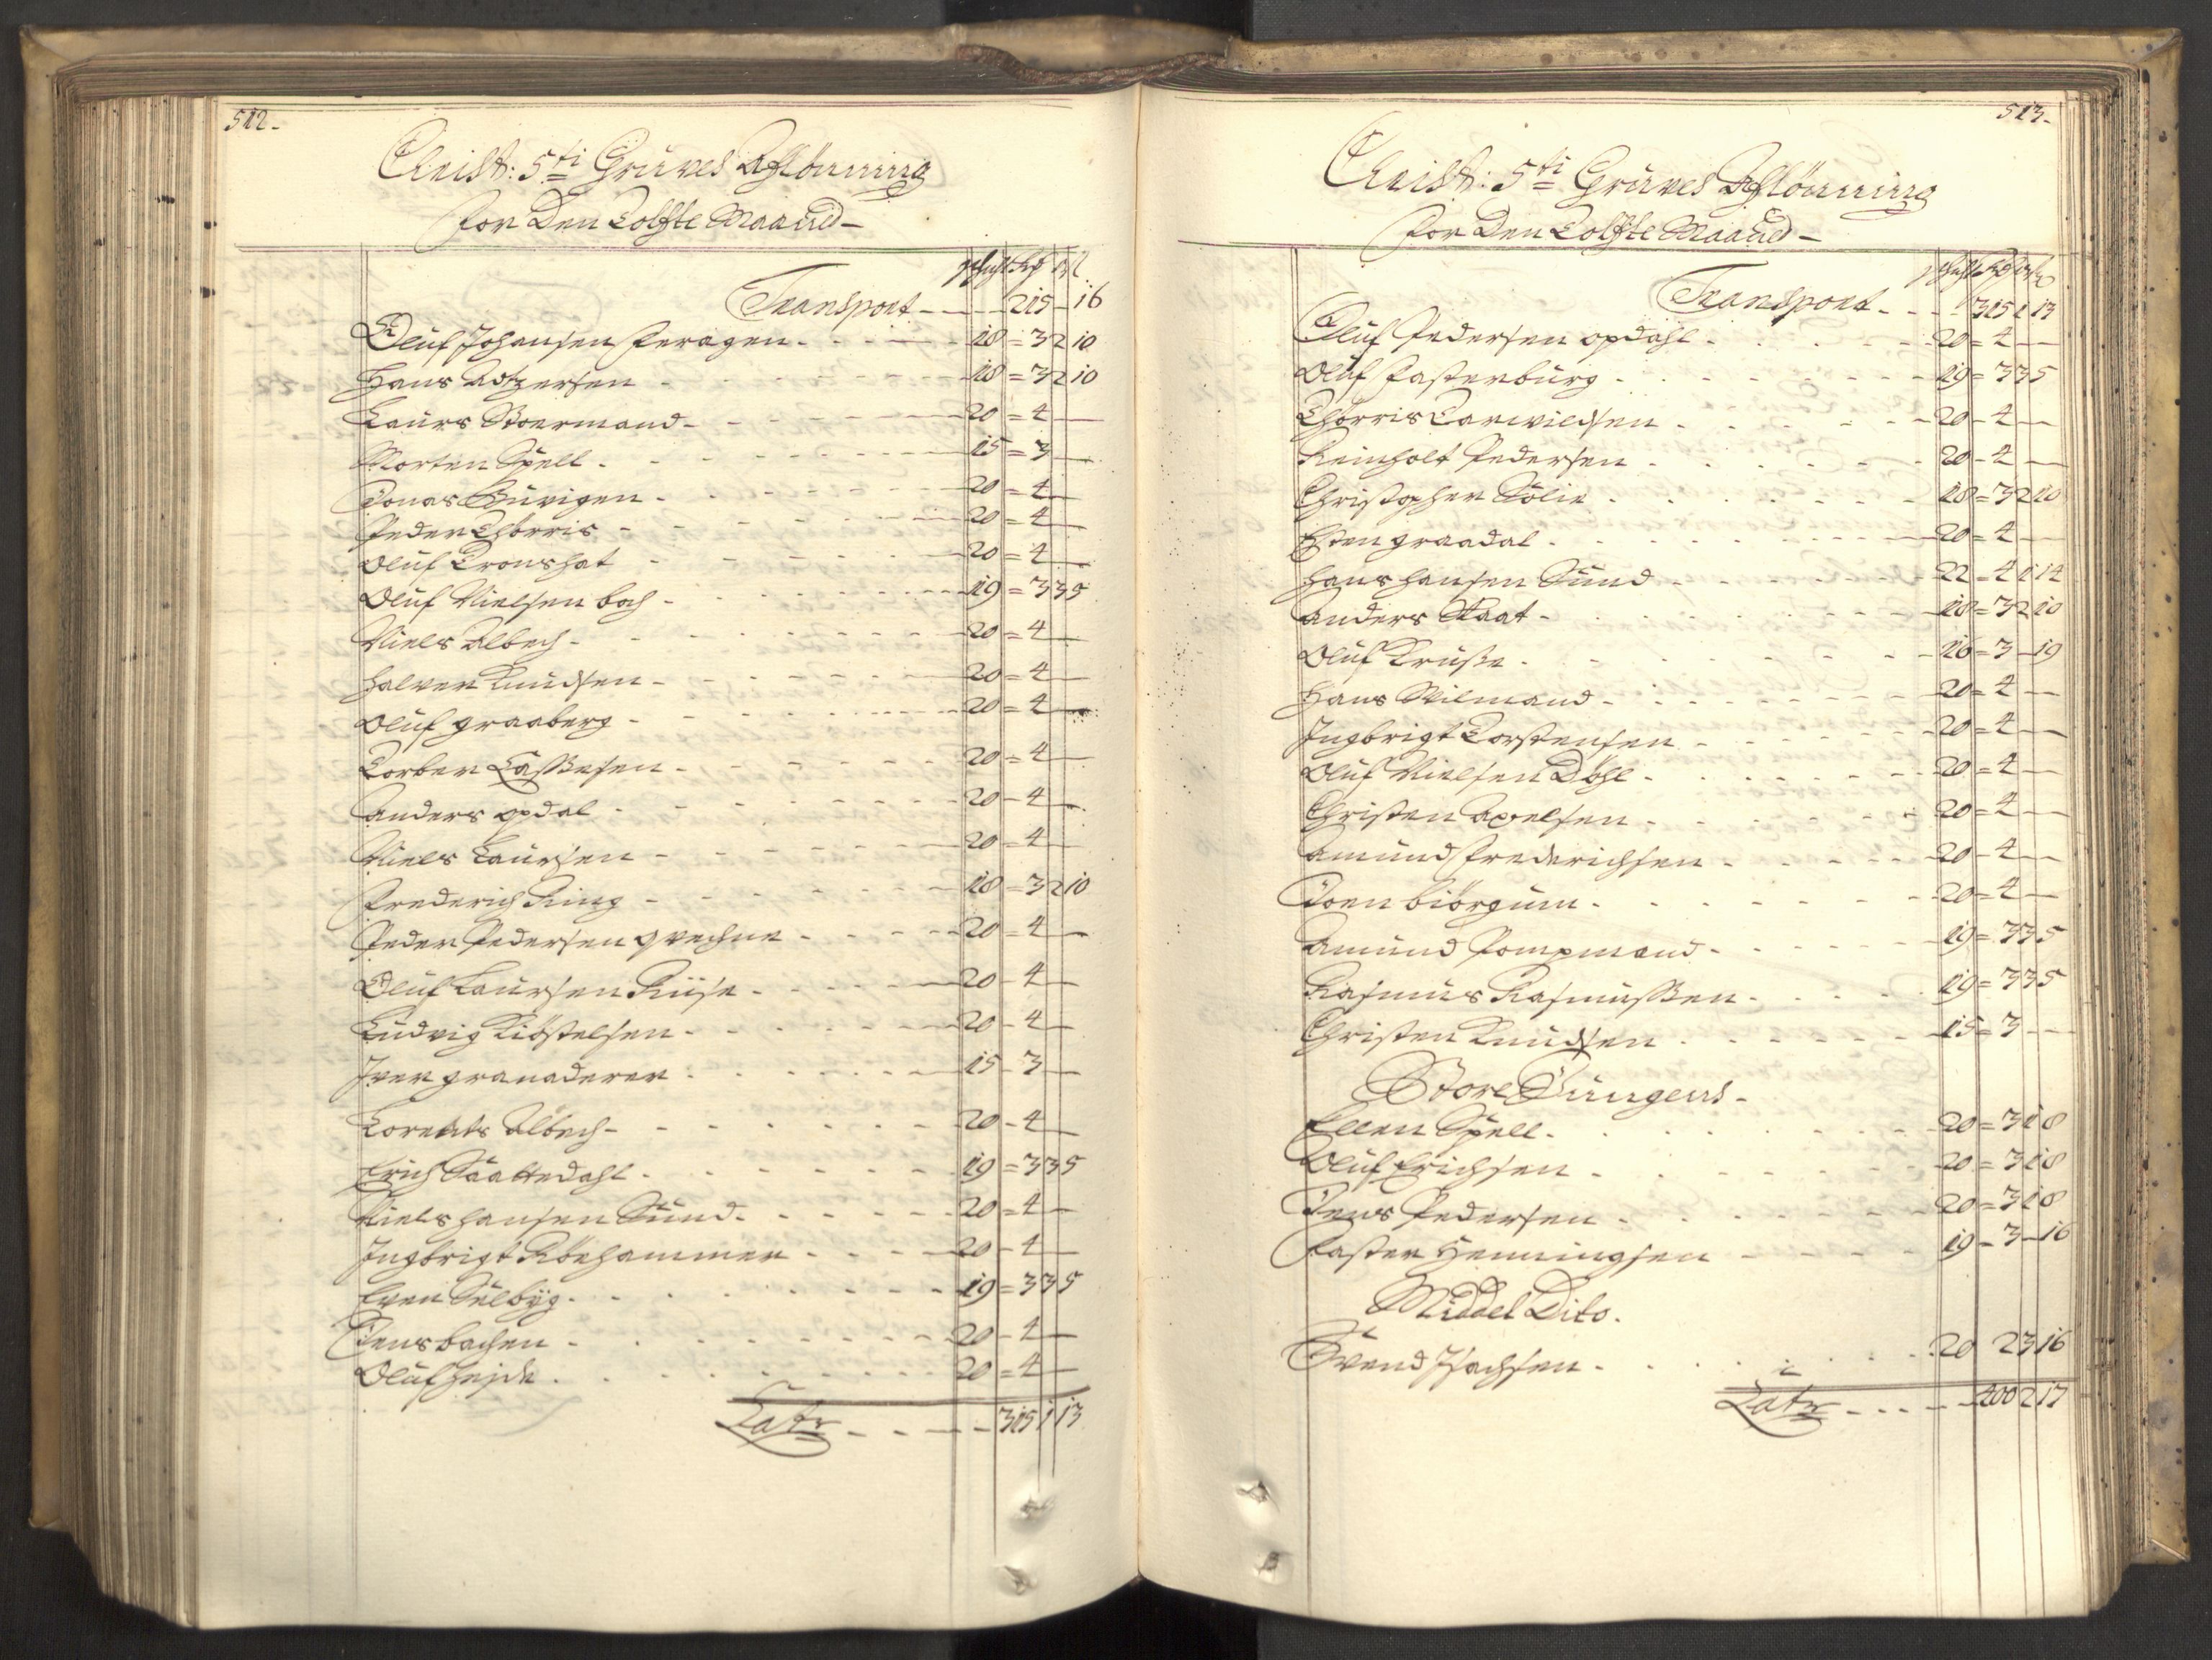 512.
Christ: 5ti Gruves Aflönning
for Den Tolfte Maaned
Transport - - - 215 - 16
Oluf Johansen Feragen - 18 = 3 2 10
Hans - 18 = 3 2 10
Laurs - 20 = 4 -
Morten Spell - 15 = 3 -
Jonas - 20 = 4 -
Peder Thorris - 20 = 4 -
Oluf Tronshat - 20 = 4 -
Oluf Nielsen boch - 19 = 3 3 5
Niels Albech - 20 = 4 -
Halver Knudsen - 20 = 4 -
Oluf graaberg - 20 = 4 -
Torber - 20 = 4 -
Anders opdal - 20 - 4 -
Niels Laursen - 20 = 4 -
Frederich Ring - 18 = 3 2 10
Peder Pedersen - 20 = 4 -
Oluf Laursen Riise - 20 - 4 -
Ludvig Kiöstelsen - 20 - 4 -
Iver granaderer - 15 - 3 -
Lorents Albech - 20 - 4 -
Erich Saattedahl - 19 = 3 3 5
Niels Hansen Sund - 20 = 4 -
Ingbrigt Röehammer - 20 - 4 -
Even Selbÿg - 19 = 3 3 5
Jens bachen - 20 - 4 -
Oluf Hejde - 20 = 4 -
Latr - - - 315 1 13
513.
Christ: 5ti Gruves Aflönning
for Den Tolfte Maaned
Transport - - - 315 1 13
Oluf Pedersen opdahl - 20 = 4 -
Oluf Fasterburg - 19 = 3 3 5
Thorris Tarvieldsen - 20 - 4 -
Reinholt Pedersen - 20 - 4 -
Christopher Solie - 18 = 3 2 10
Esten graadal - 20 = 4 -
Hans Hansen Sund - 22 = 4 1 14
Anders Skaat - 18 = 3 2 10
Oluf Kruse - 16 = 3 - 19
Hans Wilmand - 20 = 4 -
Ingbrigt Torstensen - 20 = 4 -
Oluf Nielsen Döhl - 20 = 4 -
Christen Axelsen - 20 = 4 -
Amund Frederichsen - 20 - 4 -
Joen biörgum - 20 = 4 -
Amund Pompmand - 19 = 3 3 5
Rasmus Rasmussen - 19 = 3 3 5
Christen Knudsen - 15 = 3 -
Store Dungens -
Ellen Spell - 20 = 3 1 8
Oluf Erichsen - 20 = 3 1 8
Jens Pedersen - 20 = 3 1 8
Faster Henningsen - 19 - 3 - 16
Middel Dito.
Svend Isachsen - 20 2 3 16
Latr - - - 400 2 17